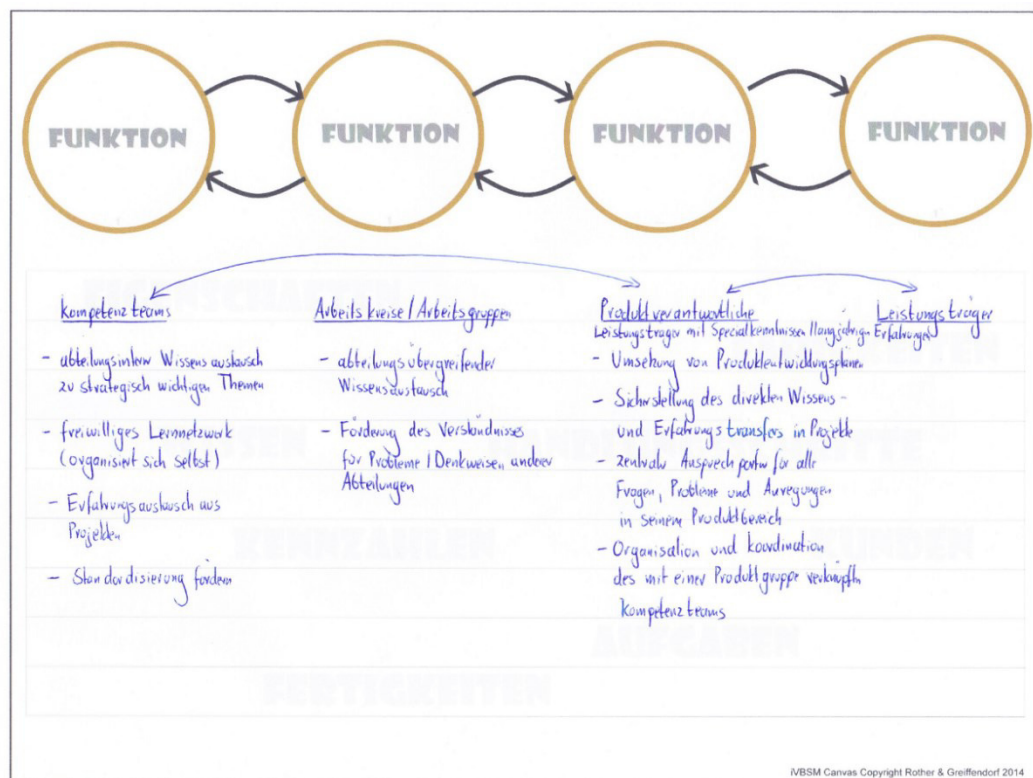 FUNKTION
FUNKTION
FUNKTION
FUNKTION
Kompetenzteams
- abteilungsintern Wissensaustausch
zu strategisch wichtigen Themen
- freiwilliges Lernnetzwerk
(organisiert sich selbst)
- Erfahrungsaustausch aus
Projekten
- Standardisierung fördern
Arbeitskreise / Arbeitsgruppen
- abteilungsübergreifender
Wissensaustausch
- Förderung des Verständnisses
für Probleme / Denkweisen anderer
Abteilungen
Produktverantwortliche
Leistungsträger mit Specialkenntnissen / langjährigen Erfahrungen
- Umsetzung von Produktentwicklungsplänen
- Sicherstellung des direkten Wissens-
und Erfahrungstransfers in Projekte
- zentraler Ansprechpartner für alle
Fragen, Probleme und Anregungen
in seinem Produktbereich
- Organisation und Koordination
des mit einer Produktgruppe verknüpften
Kompetenzteams
Leistungsträger
KENNZAHLEN
KUNDEN
AUFGABEN
FERTIGKEITEN
iVBSM Canvas Copyright Rother & Greiffendorf 2014